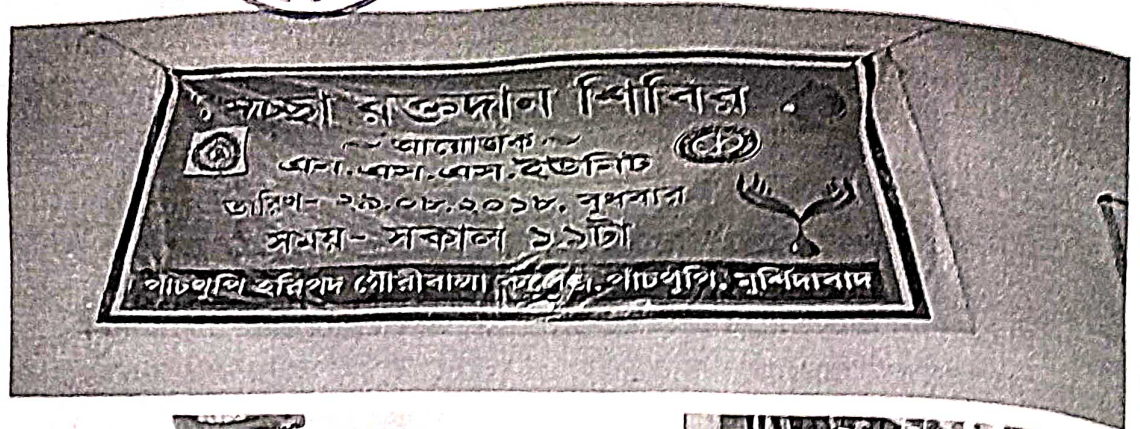 স্বেচ্ছা রক্তদান শিবির
~ আয়োজক ~
এন.এস.এস.ইউনিট
তারিখ- ২৯.০৮.২০১৮. বুধবার
সময়- সকাল ১১টা
পাঁচথুপি হরিপদ গৌরীবালা কলেজ.পাঁচথুপি. মুর্শিদাবাদ